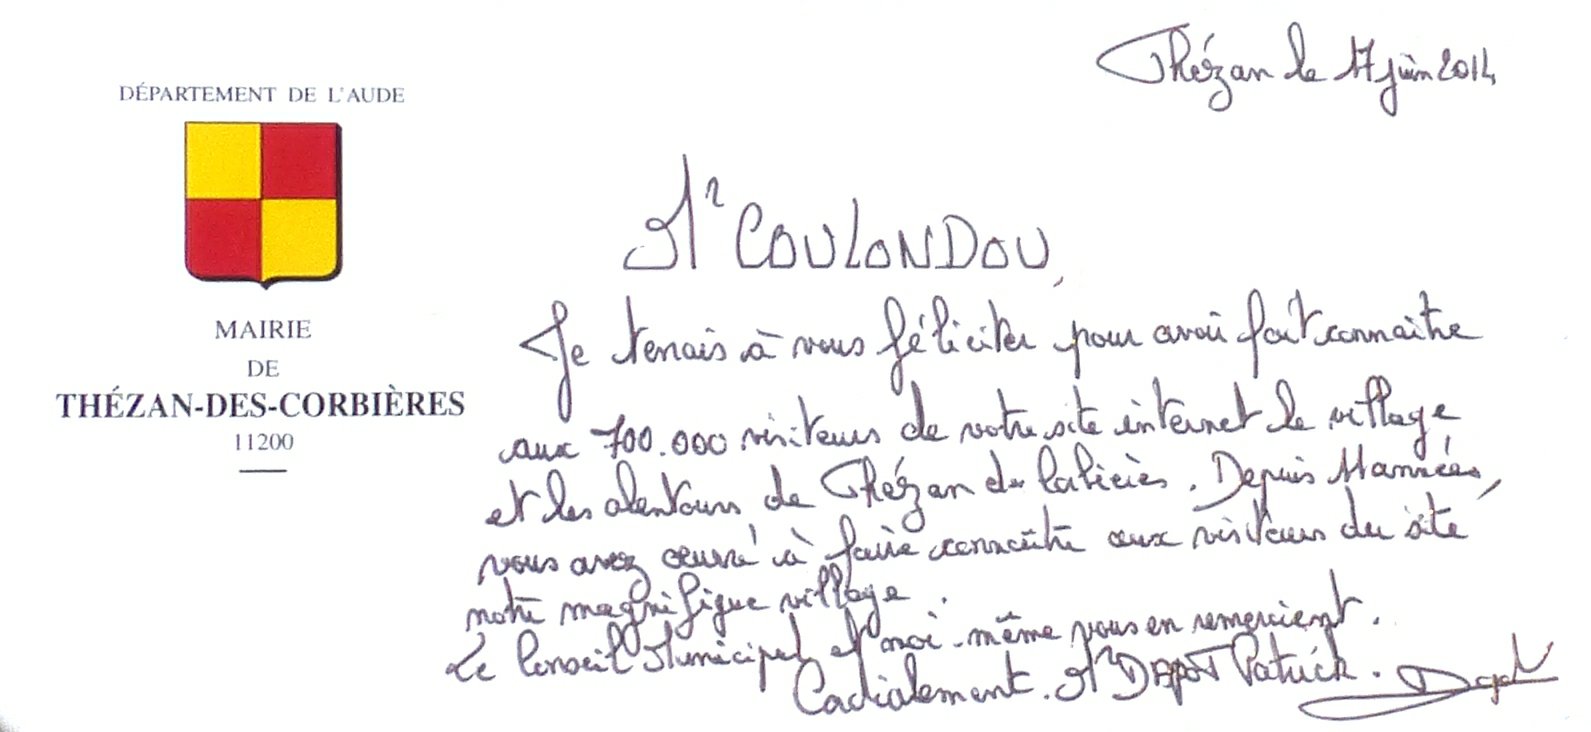 DÉPARTEMENT DE L'AUDE
MAIRIE
DE
THÉZAN-DES-CORBIÈRES
11200
Thézan le 17 juin 2014
Mr COULONDOU,
Je tenais à vous féliciter pour avoir fait connaître
aux 700.000 visiteurs de votre site internet le village
et les alentours de Thézan des Corbières. Depuis 14 années,
vous avez œuvré à faire connaître aux visiteurs du site
notre magnifique village.
Le Conseil Municipal et moi-même vous en remercient.
Cordialement. Mr DEPOT Patrick.